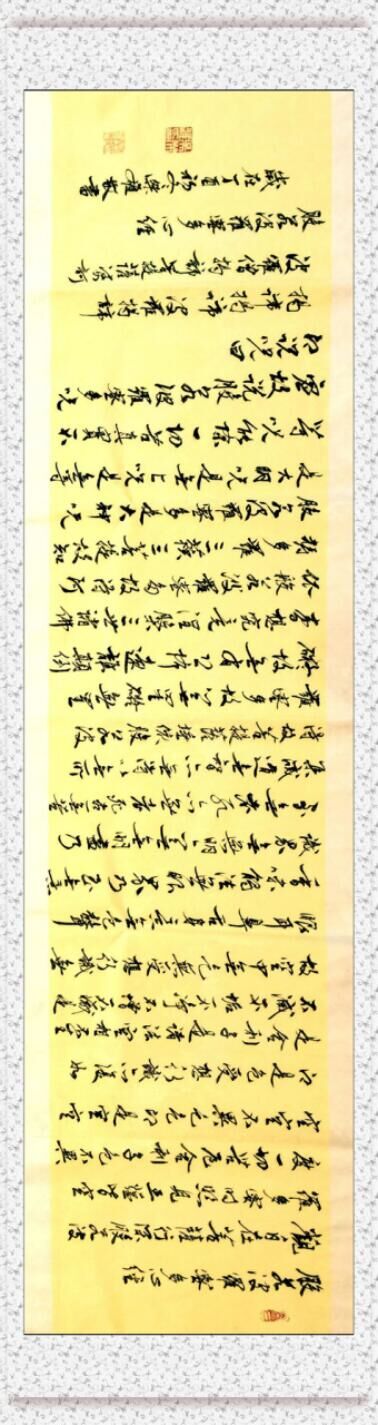 般若波羅蜜多心經
觀自在菩薩行深般若波
羅蜜多時照見五蘊皆空
度一切苦厄舍利子色不異
空空不異色色即是空空
即是色受想行識亦復如
是舍利子是諸法空相不生
不滅不垢不淨不增不減是
故空中無色無受想行識無
眼耳鼻舌身意無色聲
香味觸法無眼界乃至無意
識界無無明亦無無明盡乃
至無老死亦無老死盡無苦
集滅道無智亦無得以無所
得故菩提薩埵依般若波
羅蜜多故心無罣礙無罣
礙故無有恐怖遠離顛倒
夢想究竟涅槃三世諸佛
依般若波羅蜜多故得阿
耨多羅三藐三菩提故知
般若波羅蜜多是大神咒
是大明咒是無上咒是無等
等咒能除一切苦真實不
虛故說般若波羅蜜多咒
即說咒曰
揭諦揭諦波羅揭諦
波羅僧揭諦菩提薩婆訶
般若波羅蜜多心經
歲在丁酉初冬敬書